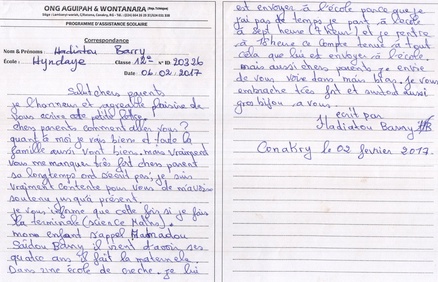 ONG AGUIPAH & WONTANARA (Rép. Guinée)
PROGRAMME D'ASSISTANCE SCOLAIRE
Correspondance
Nom & Prénoms : Hadiatou Barry
École : Hyndaye Classe 12e N° ID 20326
Date : 06.02.2017
Salut chers parents
je l'honneur et agreable plaisire de
vous ecrire cete petite lettre.
chers parents comment allez vous ?
quant à moi je vais bien et toute la
famille aussi vont bien. mais vraiment
Vous me manquer très fort chers parent
sa longtemps ont
vraiment contente pour Vous de m'
soutenu jusqu'à présent.
je vous informe que cette fois si je fais
la terminale (science Maths).
mon enfant s'appel Mamadou
Saïdou Barry il vient d'avoir ses
quatre ans il fait la maternele.
Dans une école de creche. je lui
est envoyer à l'école parce que je
j'ai pas de temps je part à l'école
à sept heure (7 heure) et je rentre
à 18 heure ce compte tenue à tout
cela que lui est envoyer à l'école.
mais aussi chers parents je envie
de vous voire dans mais bras. je vous
embrache très fort et surtout aussi
gros bijou a vous.
ecrit par
Hadiatou Barry
Conakry le 02 fevrier 2017.